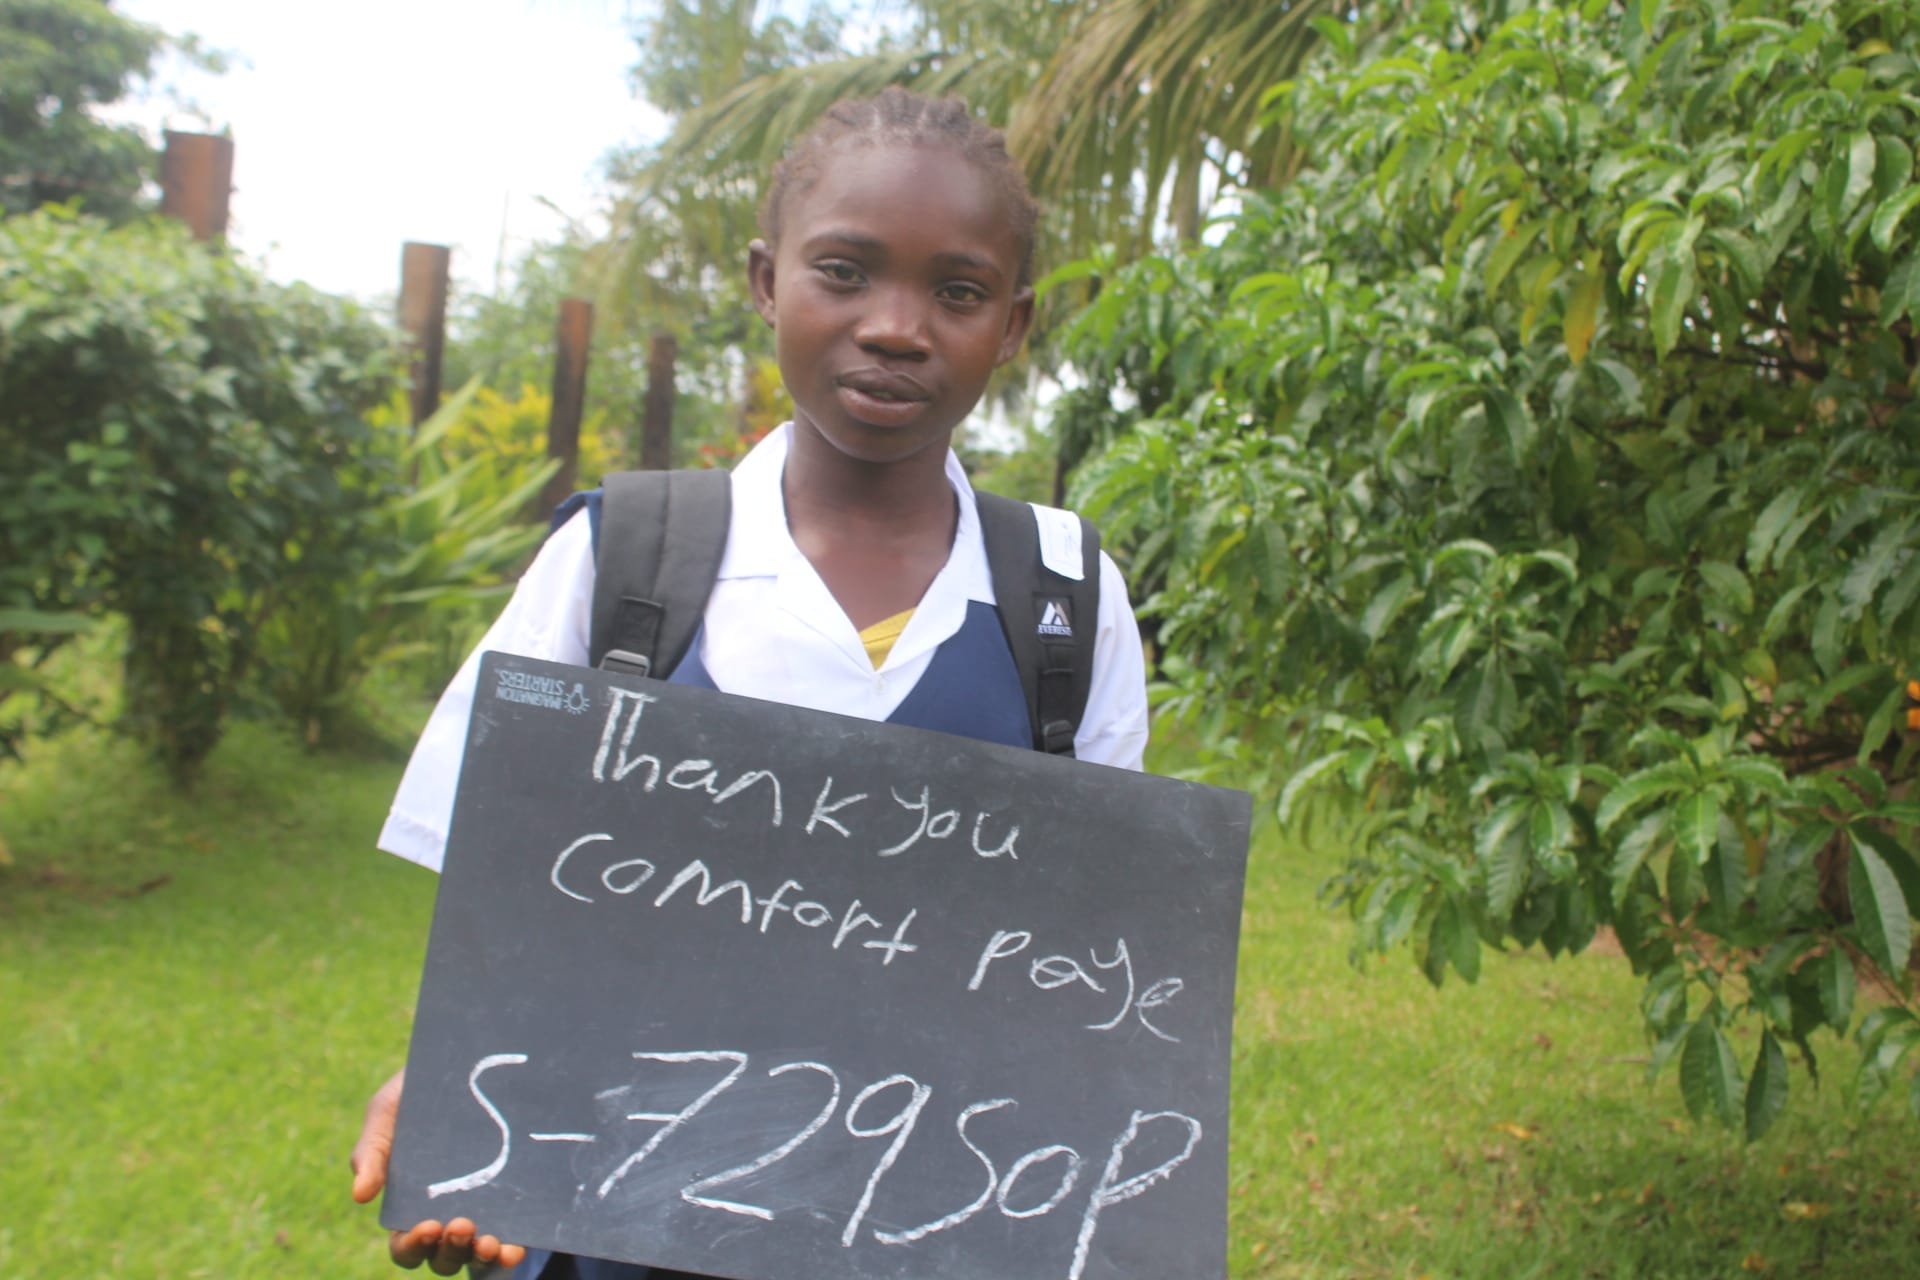 IMAGINATION
STARTERS
Thank you
Comfort Paye
S-7295op
EVEREST